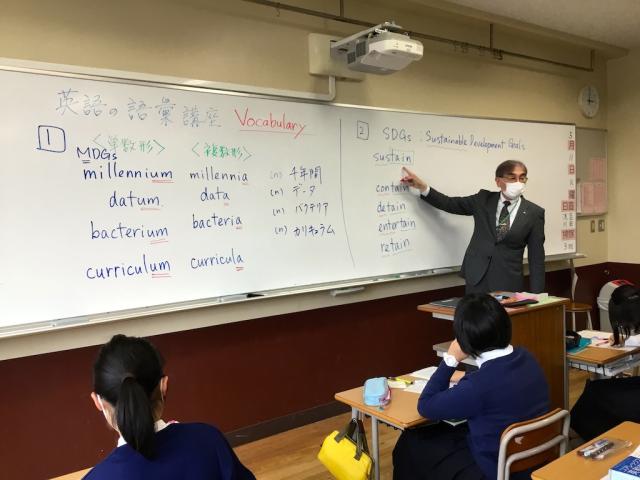 英語の語彙講座 Vocabulary
1
<単数形> <複数形>
MDGs
millennium millennia (n) 千年間
datum data (n) データ
bacterium bacteria (n) バクテリア
curriculum curricula (n) カリキュラム
2 SDGs : Sustainable Development Goals
sustain
contain
detain
entertain
retain